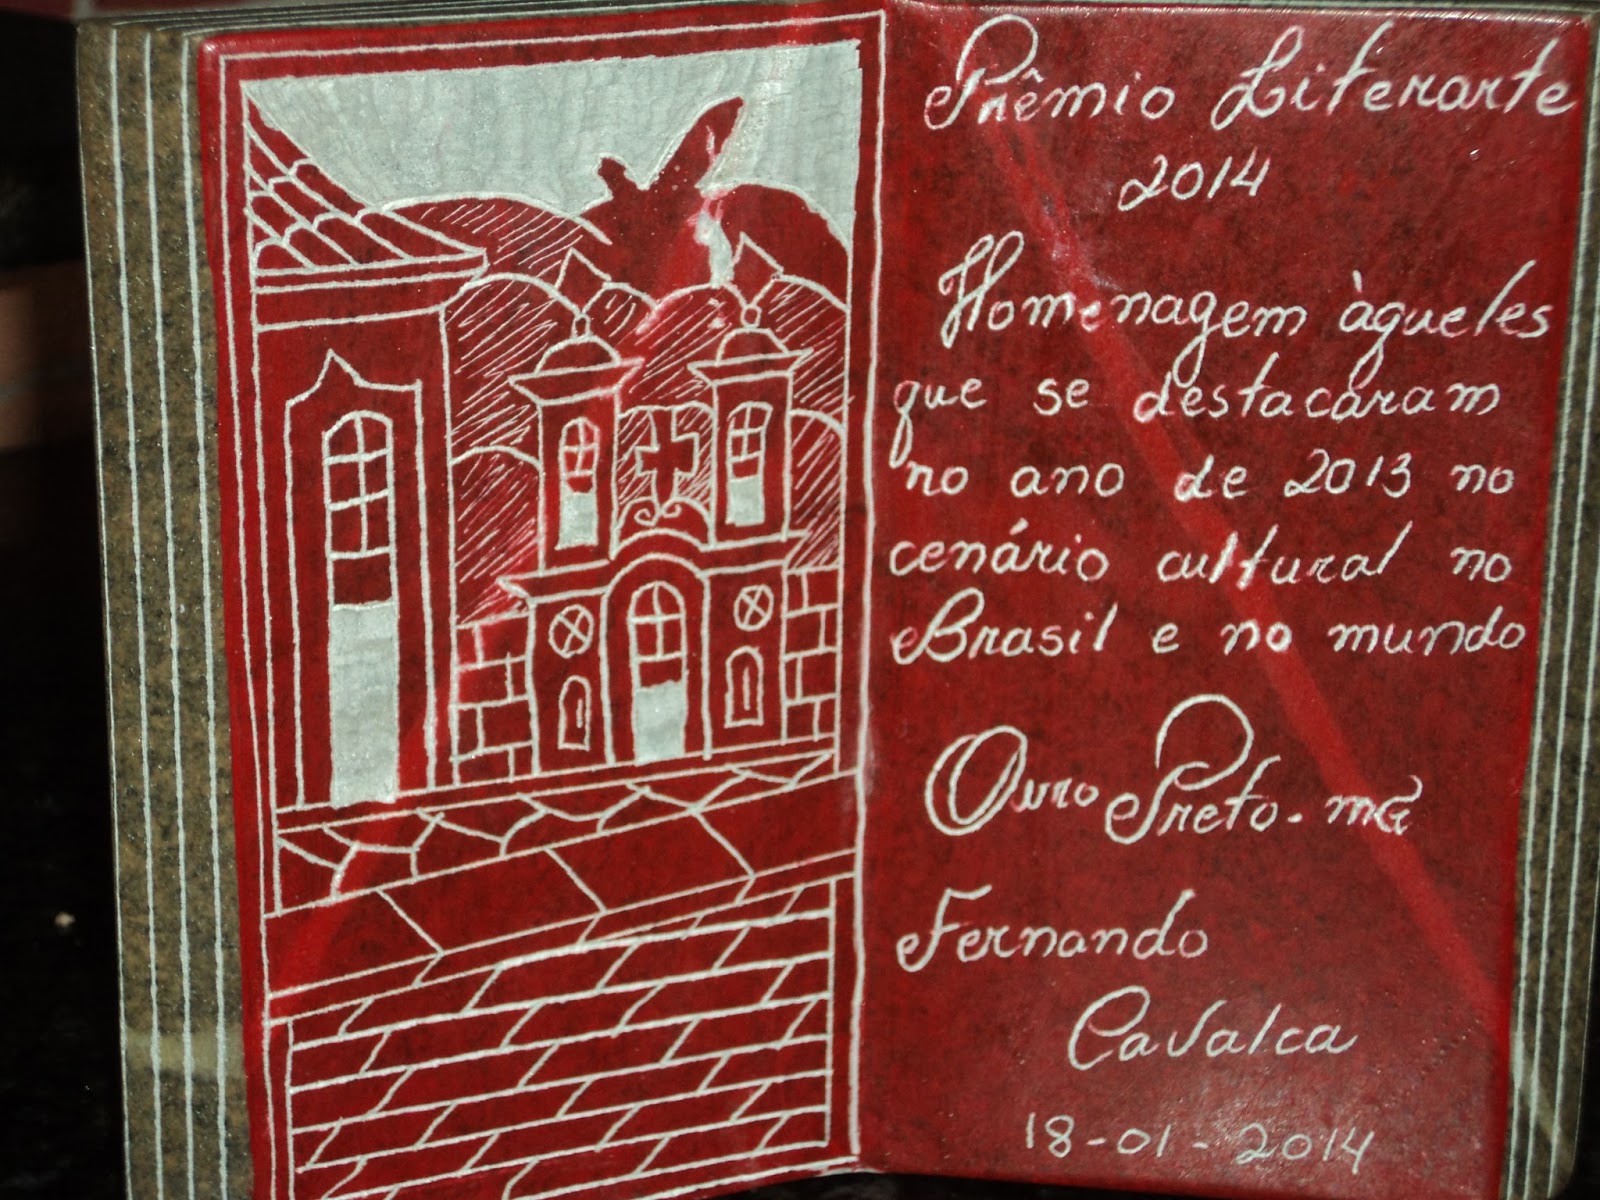 Prêmio Literarte
2014
Homenagem àqueles
que se destacaram
no ano de 2013 no
cenário cultural no
Brasil e no mundo
Ouro Preto. MG
Fernando
Cavalca
18-01-2014